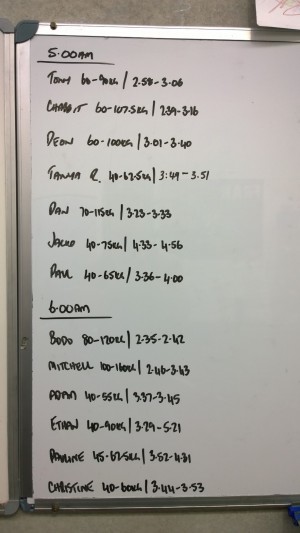 5:00AM
TONY 60-90KG | 2.58-3.06
60-107.5KG | 2.39-3.16
DEON 60-100KG | 3.01-3.40
TANYA R. 40-62.5KG | 3:49-3.51
DAN 70-115KG | 3.23-3.33
JACKO 40-75KG | 4.33-4.56
PAUL 40-65KG | 3.36-4.00
6:00AM
BODO 80-120KG | 2.35-2.42
MITCHELL 100-160KG | 2.46-3.43
ADAM 40-55KG | 3.37-3.45
ETHAN 40-90KG | 3.29-5.21
PAULINE 45-67.5KG | 3.52-4.31
CHRISTINE 40-60KG | 3.44-3.53